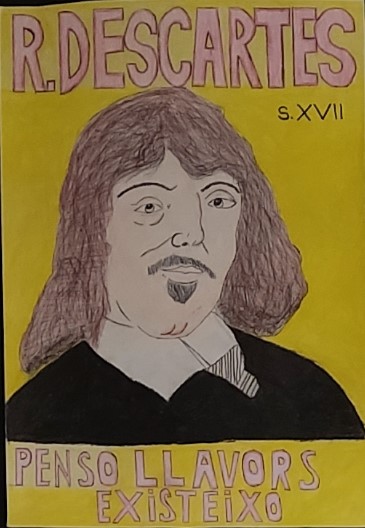 R.DESCARTES
S.XVII
PENSO LLAVORS
EXiSTEiXO